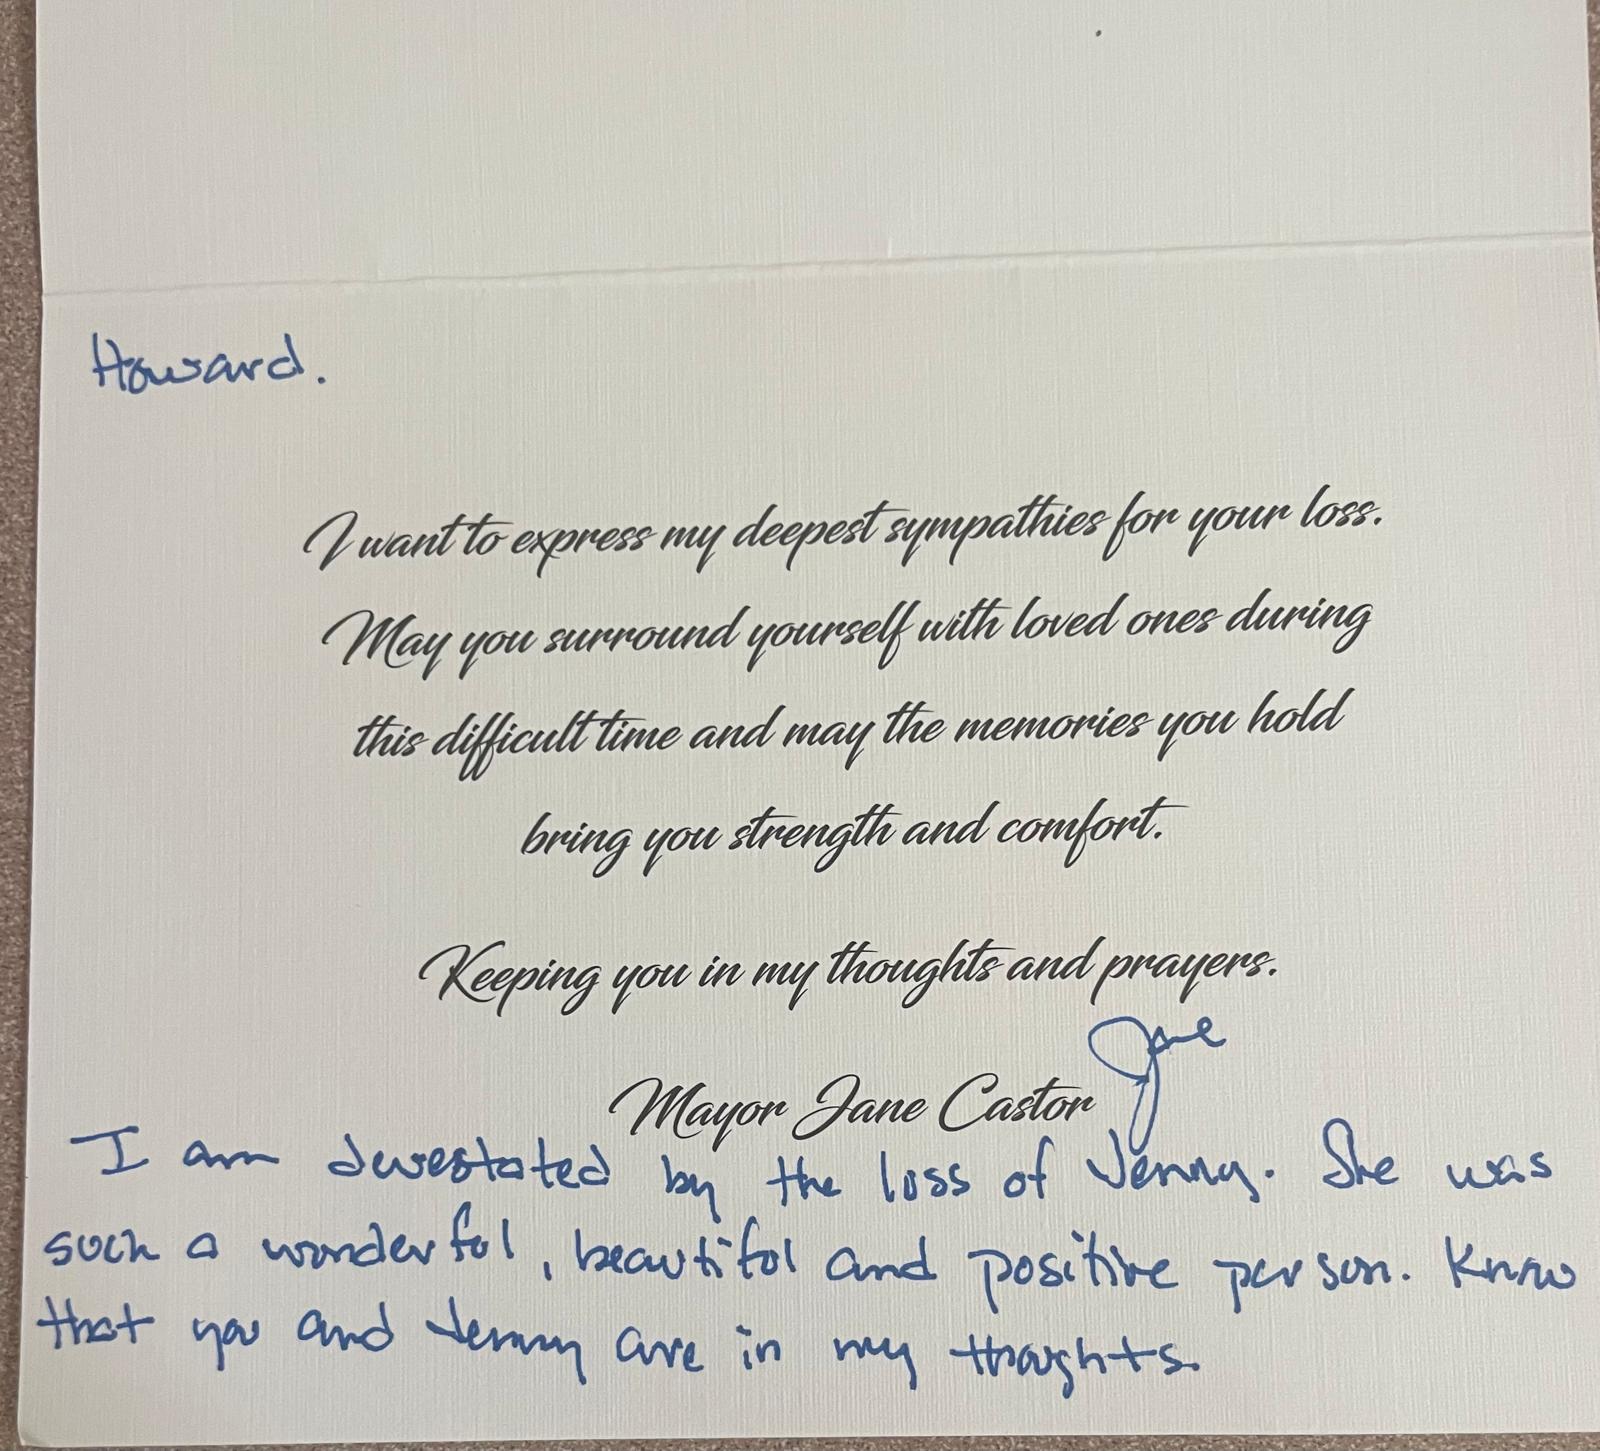 Howard.
I want to express my deepest sympathies for your loss.
May you surround yourself with loved ones during
this difficult time and may the memories you hold
bring you strength and comfort.
Keeping you in my thoughts and prayers.
Jane
Mayor Jane Castor
I am devestated by the loss of Jenny. She was
such a wonderful, beautiful and positive person. Know
that you and Jenny are in my thoughts.